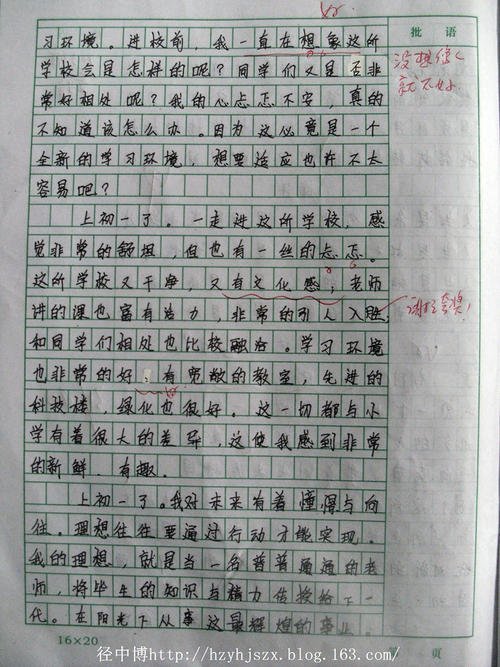 批语
习环境。进校前，我一直在想象这所
学校会是怎样的呢？同学们又是否非
常好相处呢？我的心忐忑不安，真的
不知道该怎么办。因为这必竟是一个
全新的学习环境，想要适应也许不太
容易吧？
上初一了。一走进这所学校，感
觉非常的舒坦，但也有一丝的忐忑。
这所学校又干净，又有文化感；老师
讲的课也富有活力，非常的引人入胜，
和同学们相处也比较融洽。学习环境
也非常的好：有宽敞的教室，先进的
科技楼，绿化也很好。这一切都与小
学有着很大的差异，这使我感到非常
的新鲜、有趣。
上初一了。我对未来有着憧憬与向
往。理想往往要通过行动才能实现。
我的理想，就是当一名普普通通的老
师，将毕生的知识与精力传授给下一
代。在阳光下从事这最辉煌的事业。
16×20
页
径中博http://hzyhjszx.blog.163.com/